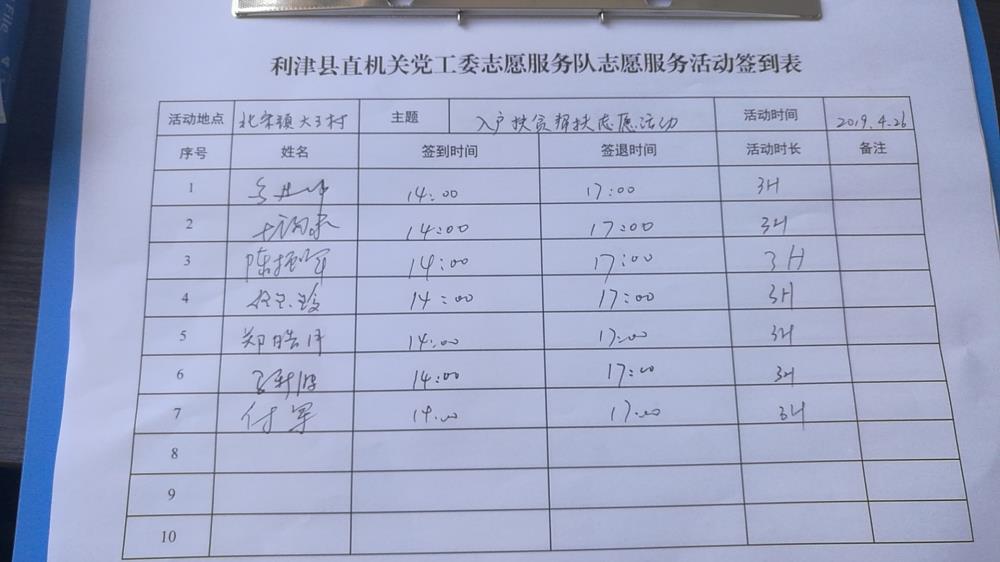 利津县直机关党工委志愿服务队志愿服务活动签到表
活动地点 北宋镇大王村 主题 入户扶贫帮扶志愿活动 活动时间 2019.4.26
序号 姓名 签到时间 签退时间 活动时长 备注
1 14:00 17:00 3H
2 14:00 17:00 3H
3 陈振军 14:00 17:00 3H
4 14:00 17:00 3H
5 郑皓 14:00 17:00 3H
6 14:00 17:00 3H
7 付军 14:00 17:00 3H
8
9
10